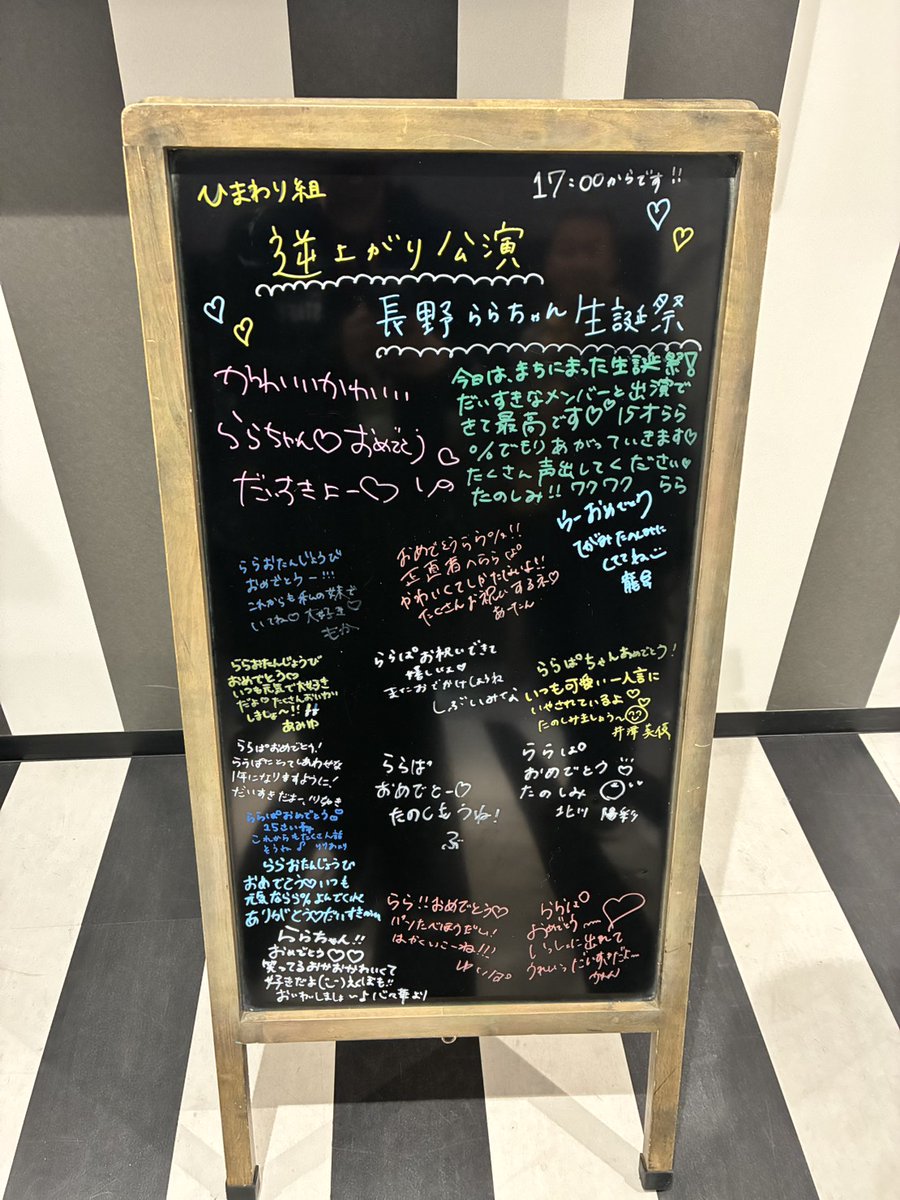 ひまわり組
17:00からです!!
逆上がり公演
長野ららちゃん生誕祭
かわいいかわいい
ららちゃん♡おめでとう
だいすきよー♡ しの
今日は、まちにまった生誕祭!
だいすきなメンバーと出演で
きて最高です♡ 15才らら
%でもりあがっていきます♡
たくさん声出してください
たのしみ!! ワクワク らら
らーおめでとう
てがみたのしみに
しててね
ららおたんじょうび
おめでとうー!!!
これからも私の妹で
いてね♡大好き♡
おめでとうららぱ!!
かわいくてしかたないよ!!
たくさんお祝いするネ♡
あーたん
ららおたんじょうび
おめでとう♡
いつも元気で大好き
だよ♡たくさんおいわい
しましょ~!!
あみゆ
ららぱお祝いできて
嬉しいよ♡
またおでかけしようね
しぶいみさな
ららぱちゃんおめでとう!
いつも可愛い一人言に
いやされているよ♡
たのしみましょう~
井澤美優
ららぱおめでとう!
ららぱにとってしあわせな
1年になりますように!
だいすきだよー、
ららぱ
おめでとー♡
たのしもうね!
ふ
ららぱ
おめでとう
たのしみ
北川 陽彩
ららぱおめでとう
15さい
これからもたくさん話
そうね♪
ららおたんじょうび
おめでとう♡いつも
元気ならら%よんでくれて
ありがとう♡だいすき
らら!!おめでとう♡
パンたべほうだい!
はやくいこーね!!
ゆいな。
ららぱ
おめでとう~
いっしょに出れて
うれしいっだいすきだよ~
かれん
ららちゃん!!
おめでとう♡♡
笑ってるおかおかわいくて
好きだよ(:-)えくぼも!!
おいわいしましょ~よ 心々華より